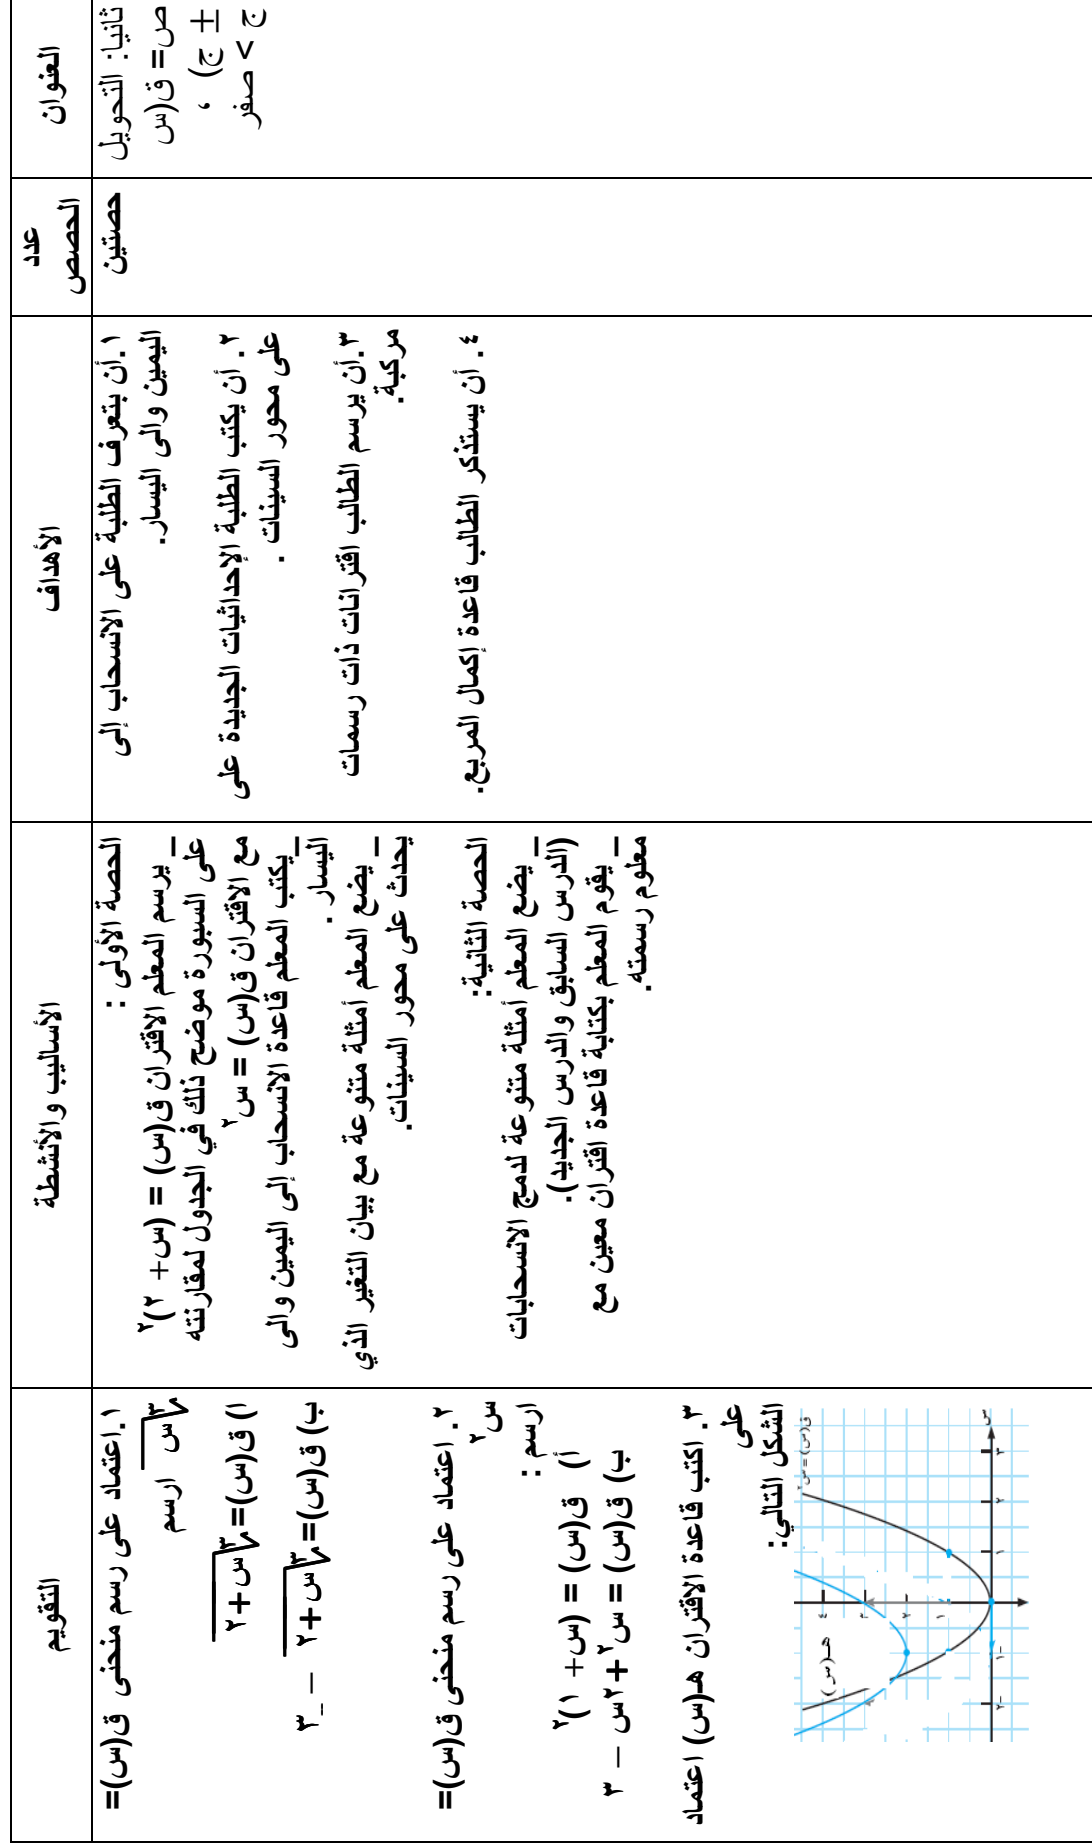 العنوان
عدد
الحصص
الأهداف
الأساليب والأنشطة
التقويم
ثانيا: التحويل
ص= ق(س
± ج) ،
ج > صفر
حصتين
١.أن يتعرف الطلبة على الانسحاب إلى
اليمين والى اليسار.
٢. أن يكتب الطلبة الإحداثيات الجديدة على
على محور السينات .
٣.أن يرسم الطالب اقترانات ذات رسمات
مركبة.
٤. أن يستذكر الطالب قاعدة إكمال المربع.
الحصة الأولى :
_ يرسم المعلم الاقتران ق(س) = (س+ ٢)٢
على السبورة موضح ذلك في الجدول لمقارنته
مع الاقتران ق(س) = س٢
_ يكتب المعلم قاعدة الانسحاب إلى اليمين والى
اليسار .
_ يضع المعلم أمثلة متنوعة مع بيان التغير الذي
يحدث على محور السينات.
الحصة الثانية:
_ يضع المعلم أمثلة متنوعة لدمج الانسحابات
(الدرس السابق والدرس الجديد).
_ يقوم المعلم بكتابة قاعدة اقتران معين مع
معلوم رسمته.
١.اعتماد على رسم منحنى ق(س)=
٣√س ارسم
ا) ق(س)=٣√س+٢
ب) ق(س)=٣√س+٢ – ٣
٢. اعتماد على رسم منحنى ق(س)=
س٢
ارسم :
أ) ق(س) = (س+ ١)٢
ب) ق(س) = س٢+٢س – ٣
٣. اكتب قاعدة الاقتران هـ(س) اعتماد
على
الشكل التالي:
ق(س)=س٢
هـ(س)
س
٤
٢
١
-٢
-١
١
٢
٣